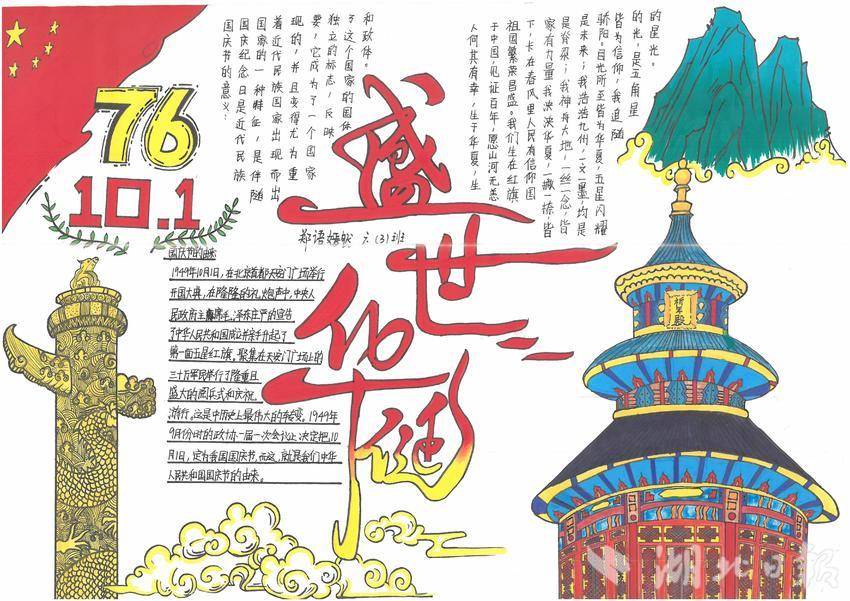 76
10.1
国庆节的意义：
国庆纪念日是近代民族
国家的一种特征，是伴随
着近代民族国家出现而出
现的，并且变得尤为重
要，它成为了一个国家
独立的标志，反映
了这个国家的国体
和政体。
人何其有幸，生于华夏，生
于中国，见证百年，愿山河无恙
祖国繁荣昌盛。我们生在红旗
下，长在春风里人民有信仰国
家有力量我泱泱华夏，一撇一捺，皆
是脊梁；我神舟大地，一丝一念，皆
是未来；我浩浩九州，一文一墨，均是
骄阳。目光所至皆为华夏，五星闪耀
皆为信仰，我追随
的光，是五角星
的星光。
盛世华诞
郑语嫣然 六(3)班
国庆节的由来
1949年10月1日，在北京首都天安门广场举行
开国大典，在隆隆的礼炮声中，中央人
民政府主席毛泽东庄严的宣告
了中华人民共和国成立并亲手升起了
第一面五星红旗。聚集在天安门广场上的
三十万军民举行了隆重且
盛大的阅兵式和庆祝
游行。这是中历史上最伟大的转变。1949年
9月份时的政协一届一次会议上决定把10
月1日，定为我国国庆节，而这，就是我们中华
人民共和国国庆节的由来。
祈年殿
湖北日报